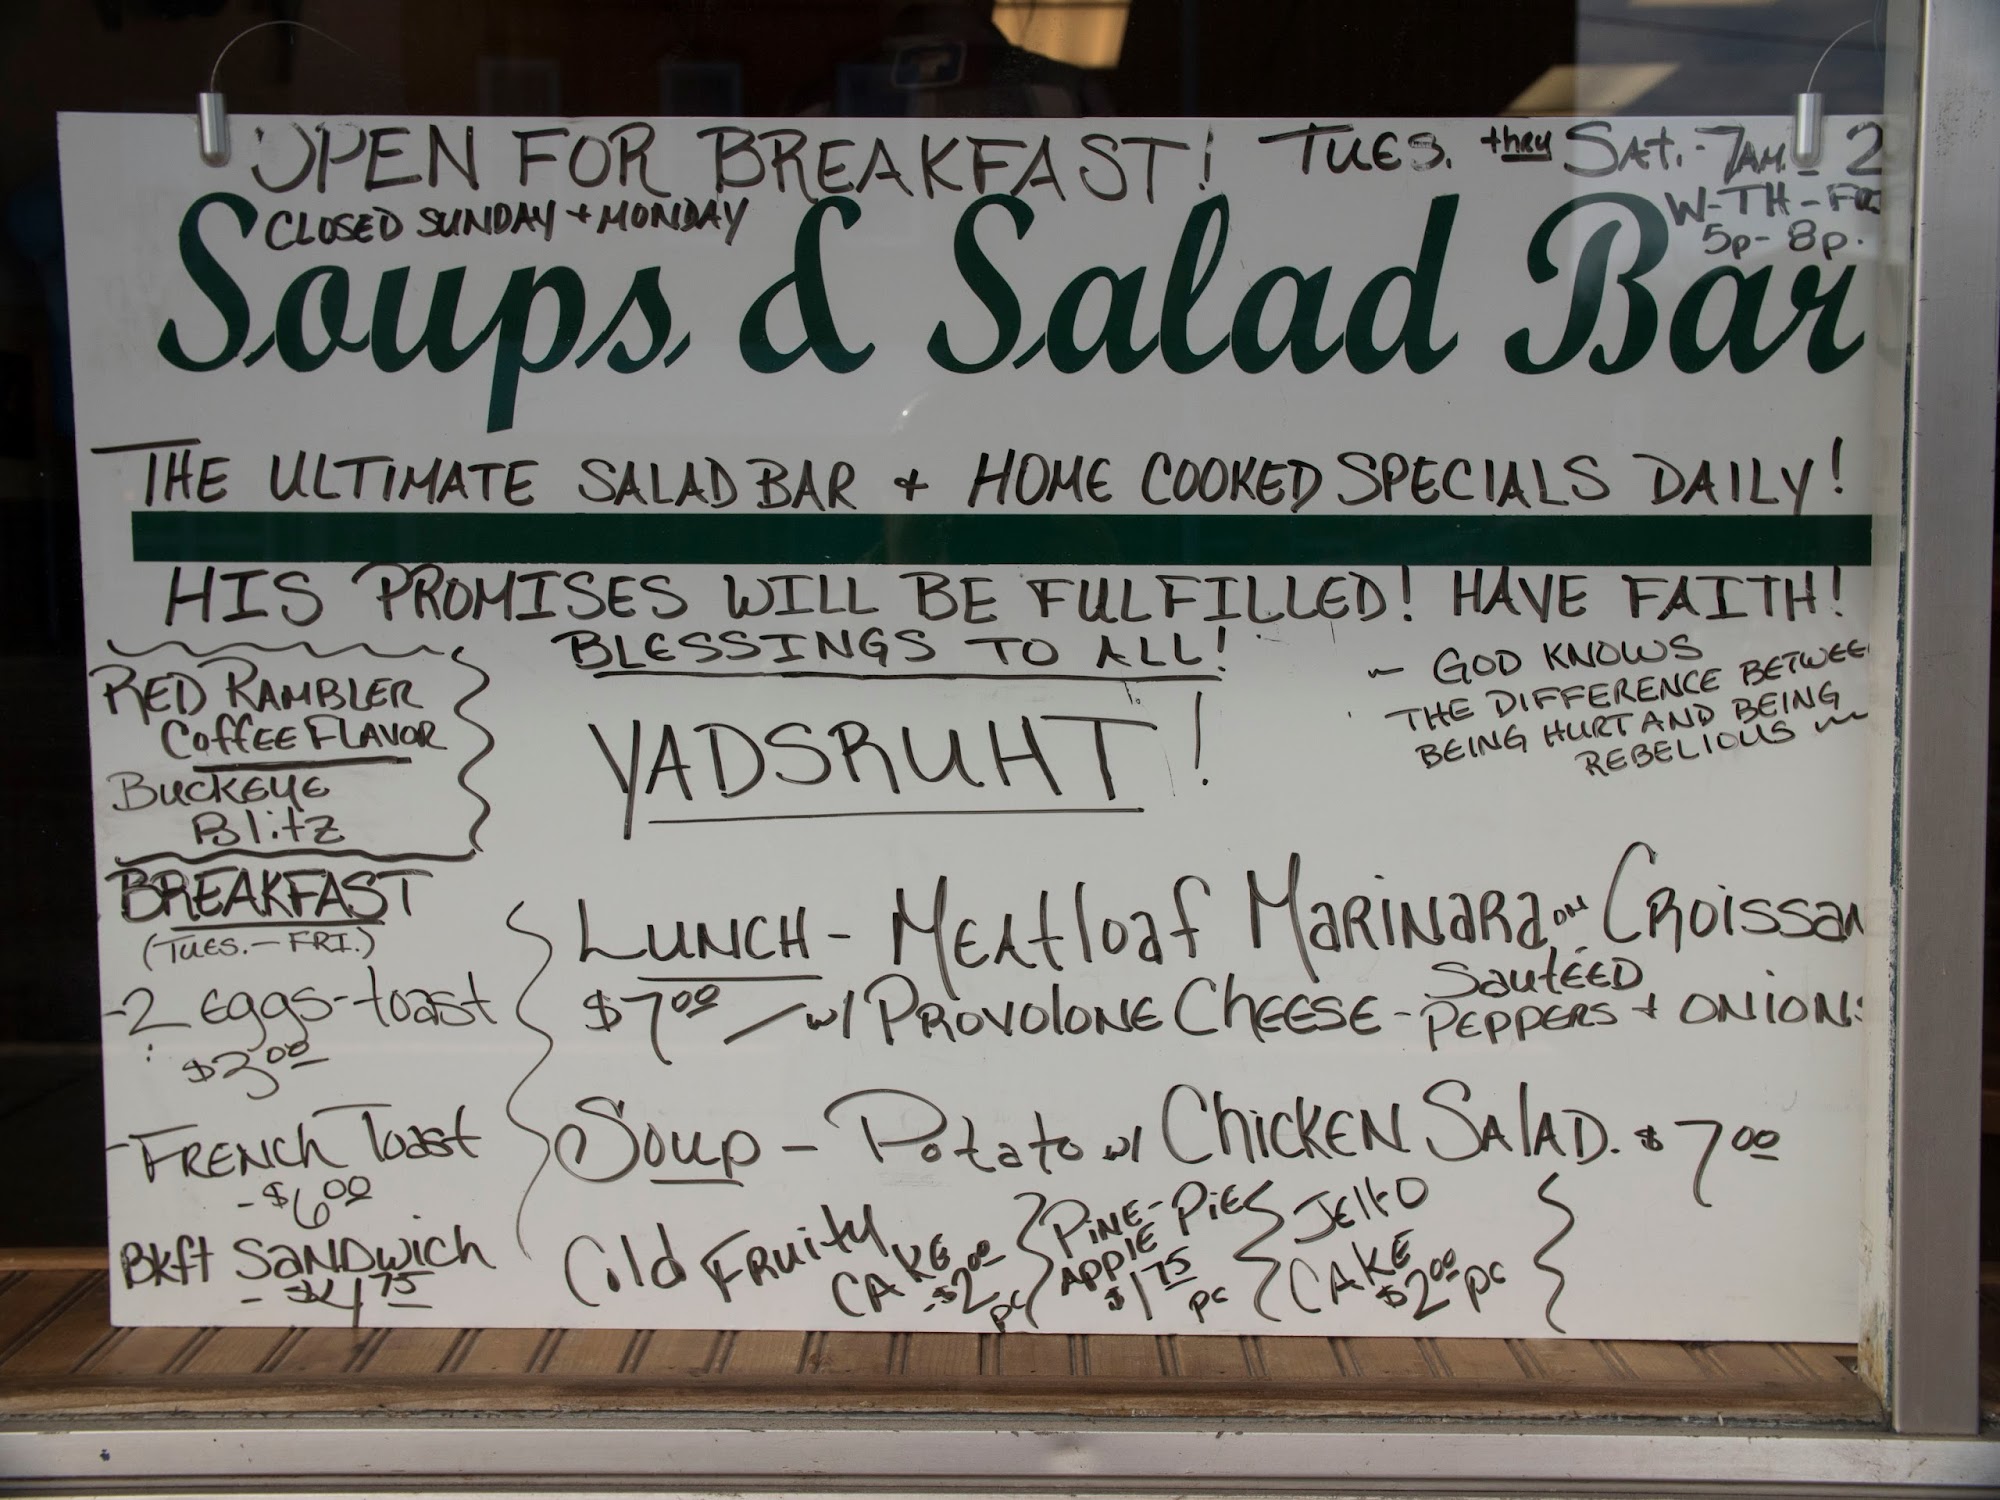 OPEN FOR BREAKFAST! TUES. thru SAT. - 7AM - 2
W-TH-FRI
5p-8p.
CLOSED SUNDAY + MONDAY
Soups & Salad Bar
THE ULTIMATE SALAD BAR + HOME COOKED SPECIALS DAILY!
HIS PROMISES WILL BE FULFILLED! HAVE FAITH!
BLESSINGS TO ALL!
~ GOD KNOWS
THE DIFFERENCE BETWEE
BEING HURT AND BEING
REBELIOUS ~
RED RAMBLER
COFFEE FLAVOR
BUCKEYE
Blitz
YADSRUHT!
BREAKFAST
(TUES. - FRI.)
-2 eggs-toast
$3.00
-FRENCH Toast
-$6.00
Bkft SANDWich
- $4.75
LUNCH - MEAtloaf MARINARA ON CROissan
$7.00 / w/ PROVOLONE CHEESE - SauteED PEPPERS + ONIONS
SOUP - Potato w/ CHICKEN SALAD. $7.00
Cold FRUITY
CAKE - $2.00 pc
PINE-
APPLE PIE
$1.75 pc
JEllO
CAKE $2.00 pc